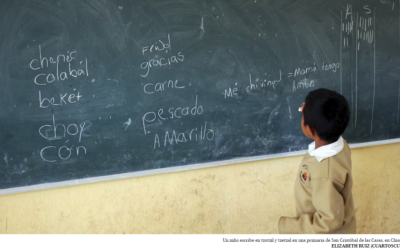 chopir
calabál
beket
chop
cón
grácias
carne
pescado
AMArillo
Mé chivinal = Mamá tengo
R S
Un niño escribe en tzotzil y tzetzal en una primaria de San Cristóbal de las Casas, en Chia
ELIZABETH RUIZ (CUARTOSCU